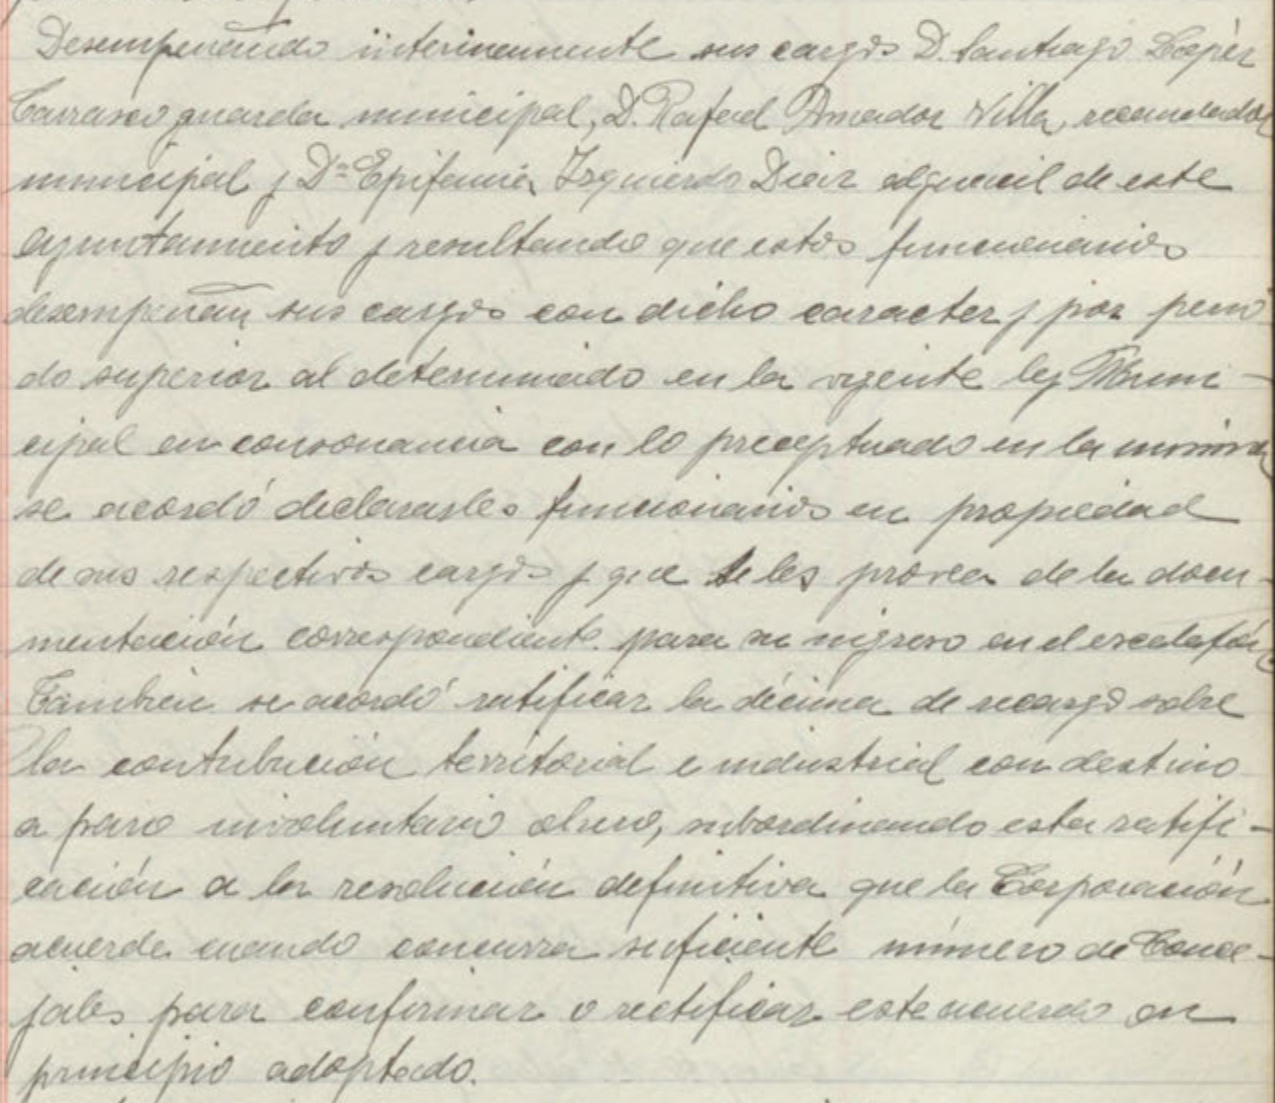 Desempeñando interinamente sus cargos D. Santiago López
Carrasco guarda municipal, D. Rafael Amador Villa, recaudador
municipal y Dª Epifania Izquierdo Diez alguacil de este
ayuntamiento y resultando que estos funcionarios
desempeñan sus cargos con dicho caracter y por perio
do superior al determinado en la vigente ley Muni-
cipal en consonancia con lo preceptuado en la misma
se acordó declararles funcionarios en propiedad
de sus respectivos cargos y que se les provea de la docu-
mentación correspondiente para su ingreso en el escalafón
Tambien se acordó ratificar la décima de recargo sobre
la contribución territorial e industrial con destino
a paro involuntario obrero, subordinando esta ratifi-
cación a la resolución definitiva que la Corporación
acuerde cuando concurra suficiente número de Conce-
jales para confirmar o rectificar este acuerdo en
principio adoptado.